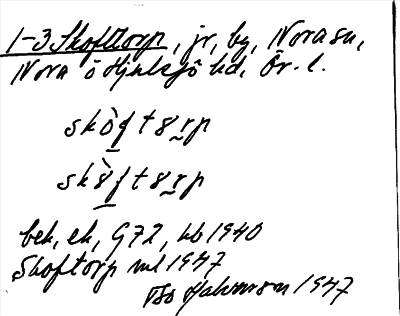 1-3 Skoftorp, jr, by, Nora sn,
Nora o Hjulsjö hd, Ör. l.
skòftȣrp
skȣ̀ftȣrp
bek, ek, G72, kb 1940
Skoftorp ml 1947
Tso Halvarson 1947